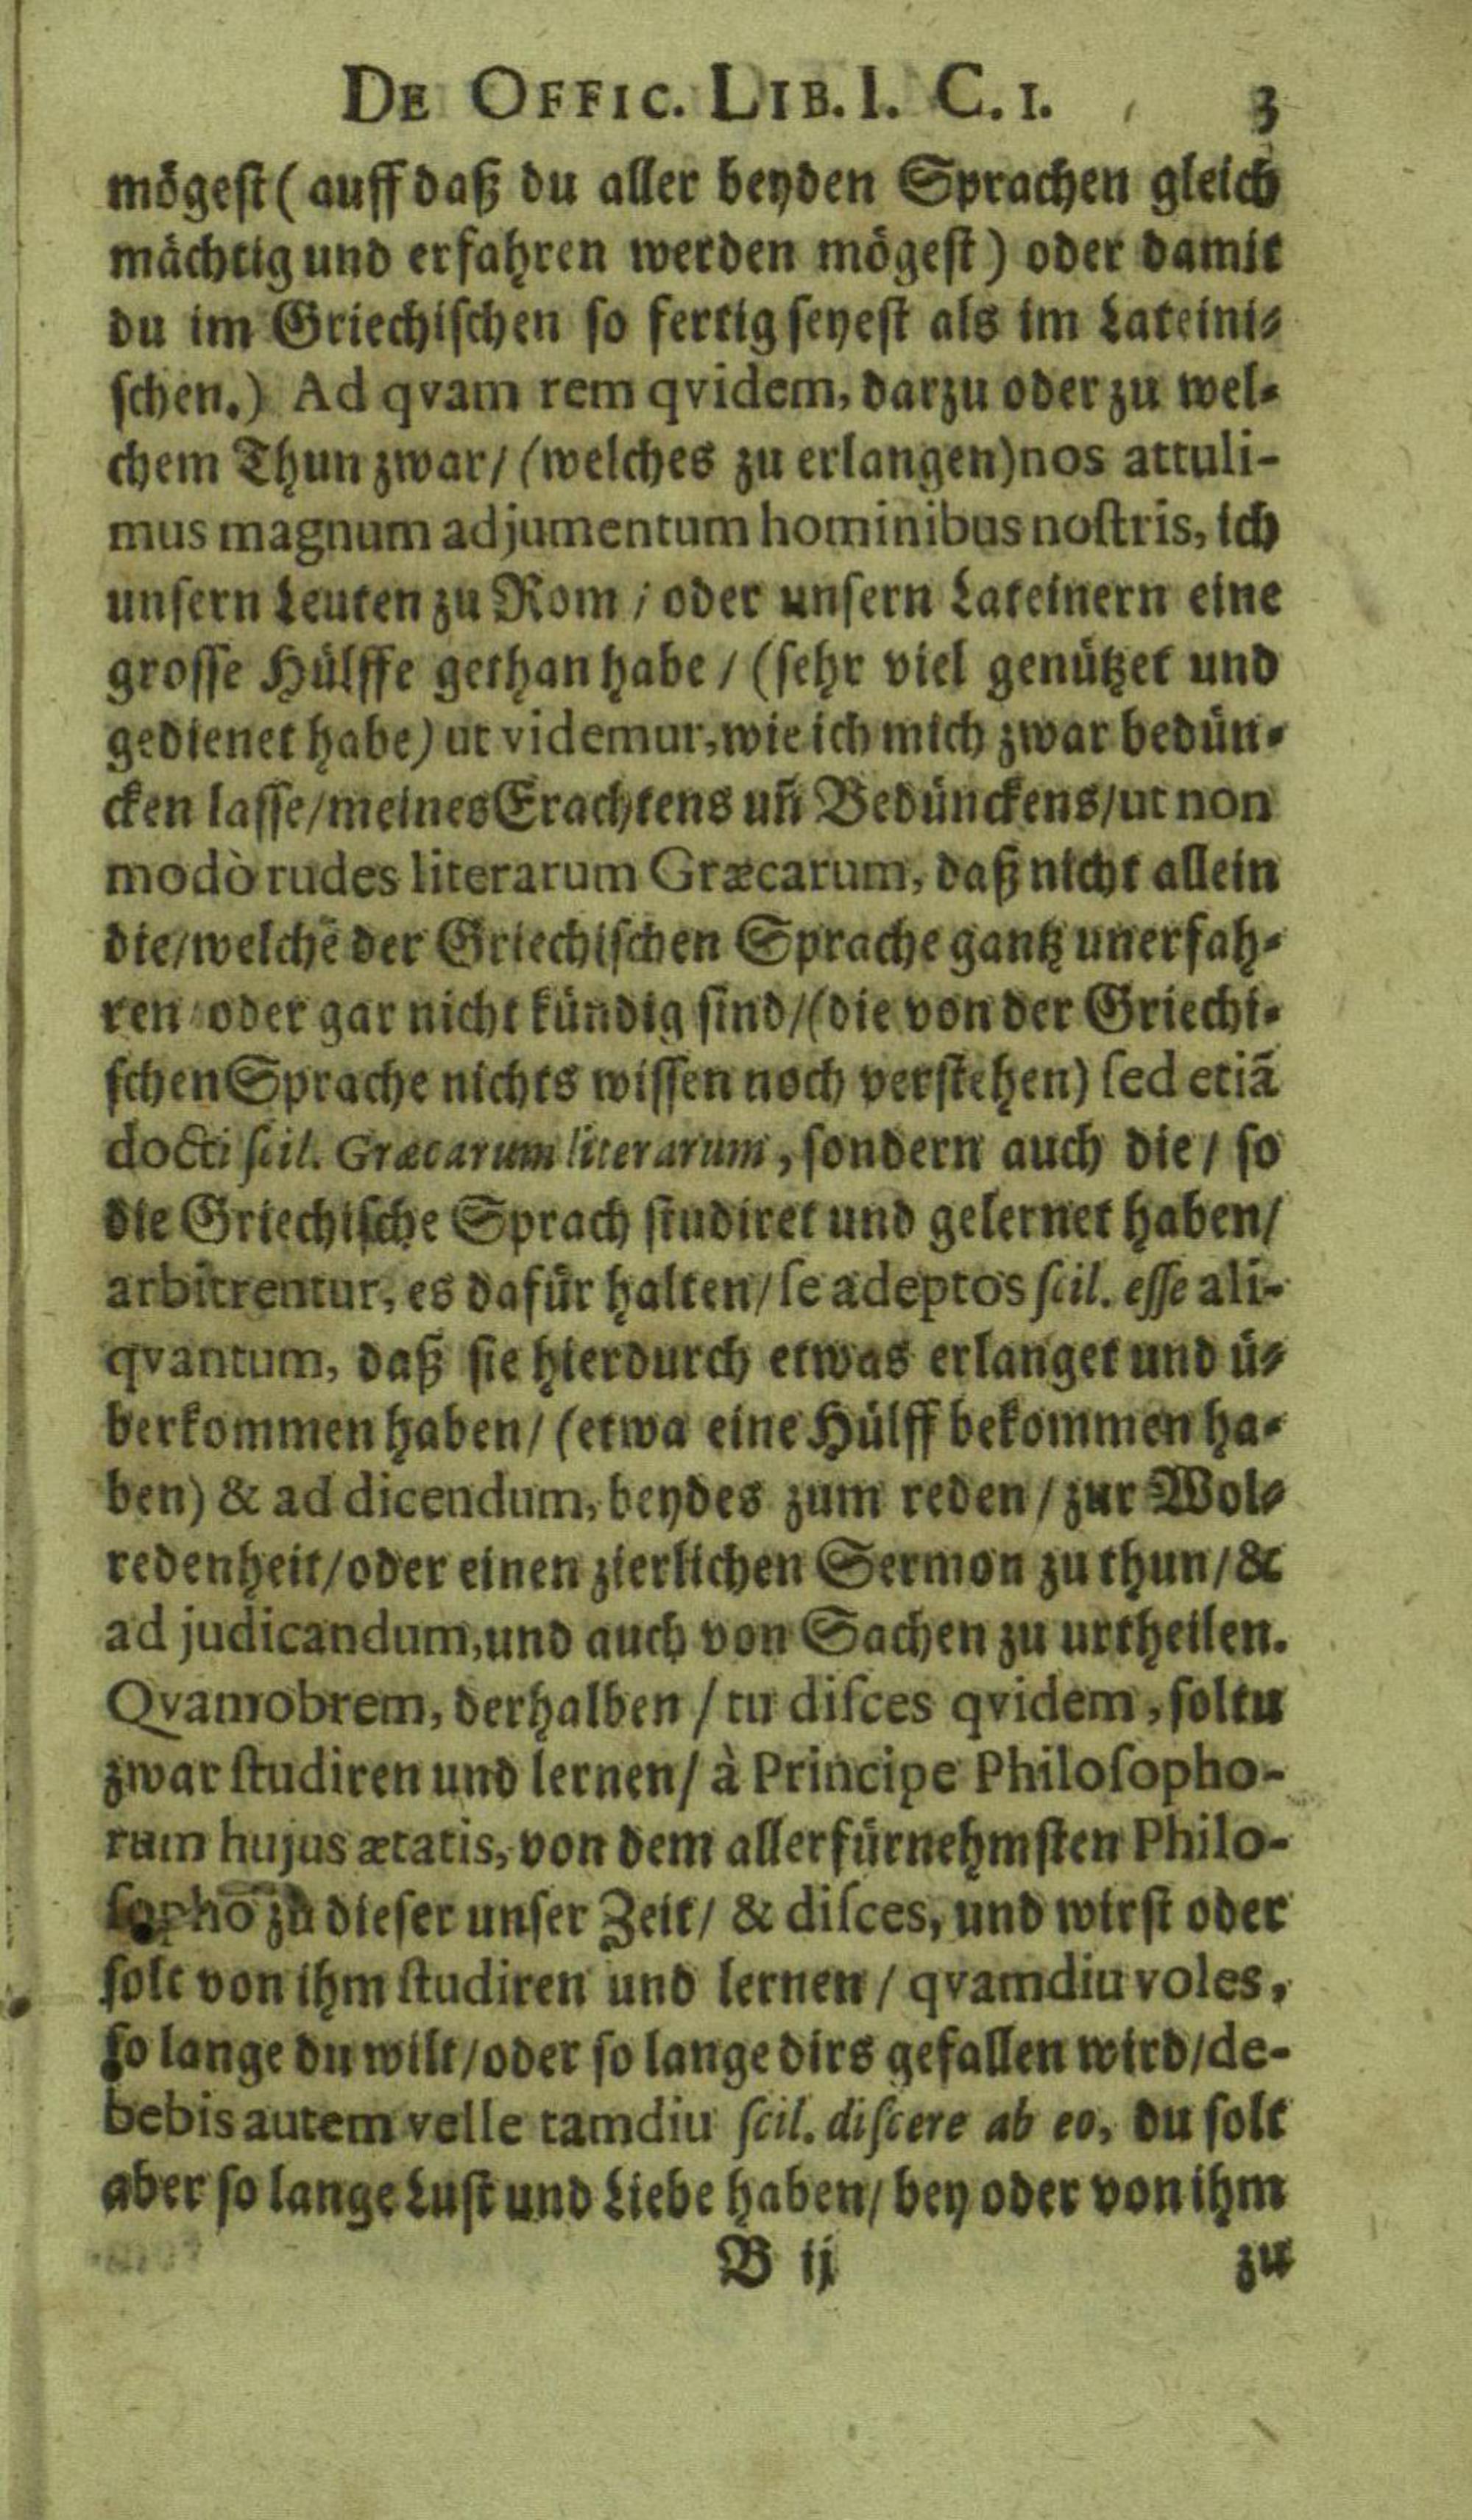 DE OFFIC. LIB. I. C. I. 3
mögest (auff daß du aller beyden Sprachen gleich
mächtig und erfahren werden mögest) oder damit
du im Griechischen so fertig seyest als im Lateini-
schen.) Ad qvam rem qvidem, darzu oder zu wel-
chem Thun zwar/ (welches zu erlangen) nos attuli-
mus magnum adjumentum hominibus nostris, ich
unsern Leuten zu Rom / oder unsern Lateinern eine
grosse Hülffe gethan habe / (sehr viel genützet und
gedienet habe) ut videmur, wie ich mich zwar bedün-
cken lasse/ meines Erachtens uñ Bedünckens/ ut non
modò rudes literarum Græcarum, daß nicht allein
die/ welche der Griechischen Sprache gantz unerfah-
ren oder gar nicht kündig sind/ (die von der Griechi-
schen Sprache nichts wissen noch verstehen) sed etiã
docti scil. Græcarum literarum, sondern auch die / so
die Griechische Sprach studiret und gelernet haben/
arbitrentur, es dafür halten/ se adeptos scil. esse ali-
qvantum, daß sie hierdurch etwas erlanget und ü-
berkommen haben/ (etwa eine Hülff bekommen ha-
ben) & ad dicendum, beydes zum reden / zur Wol-
redenheit/ oder einen zierlichen Sermon zu thun/ &
ad judicandum, und auch von Sachen zu urtheilen.
Qvamobrem, derhalben / tu disces qvidem, soltu
zwar studiren und lernen/ à Principe Philosopho-
rum hujus ætatis, von dem allerfürnehmsten Philo-
sopho zu dieser unser Zeit/ & disces, und wirst oder
solt von ihm studiren und lernen / qvamdiu voles,
so lange du wilt/ oder so lange dirs gefallen wird/ de-
bebis autem velle tamdiu scil. discere ab eo, du solt
aber so lange Lust und Liebe haben/ bey oder von ihm
B ij zu